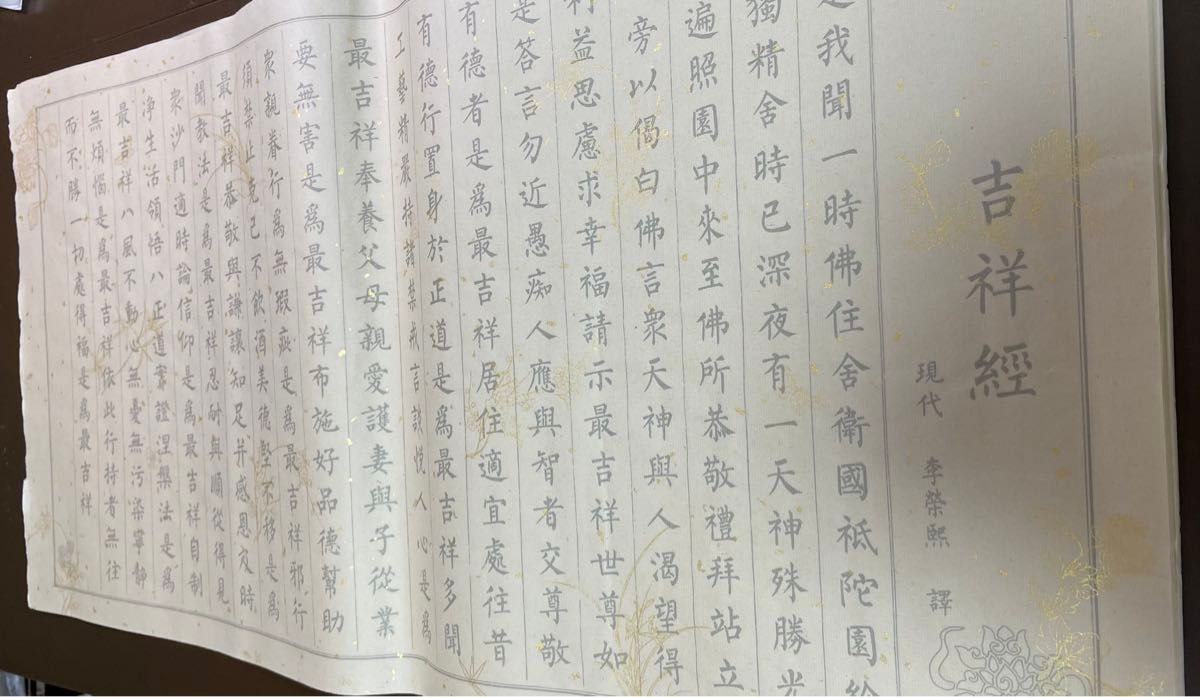 吉祥經
現代 李榮熙 譯
我聞一時佛住舍衛國祇陀園給
獨精舍時已深夜有一天神殊勝光
遍照園中來至佛所恭敬禮拜站立
旁以偈白佛言衆天神與人渴望得
利益思慮求幸福請示最吉祥世尊如
是答言勿近愚痴人應與智者交尊敬
有德者是爲最吉祥居住適宜處往昔
有德行置身於正道是爲最吉祥多聞
工藝精嚴持諸禁戒言談悅人心是爲
最吉祥奉養父母親愛護妻與子從業
要無害是爲最吉祥布施好品德幫助
衆親眷行爲無瑕疵是爲最吉祥邪行
須禁止克己不飲酒美德堅不移是爲
最吉祥恭敬與謙讓知足并感恩及時
聞教法是爲最吉祥忍耐與順從得見
衆沙門適時論信仰是爲最吉祥自制
淨生活領悟八正道實證涅槃法是爲
最吉祥八風不動心無憂無污染寧靜
無煩惱是爲最吉祥依此行持者無往
而不勝一切處得福是爲最吉祥